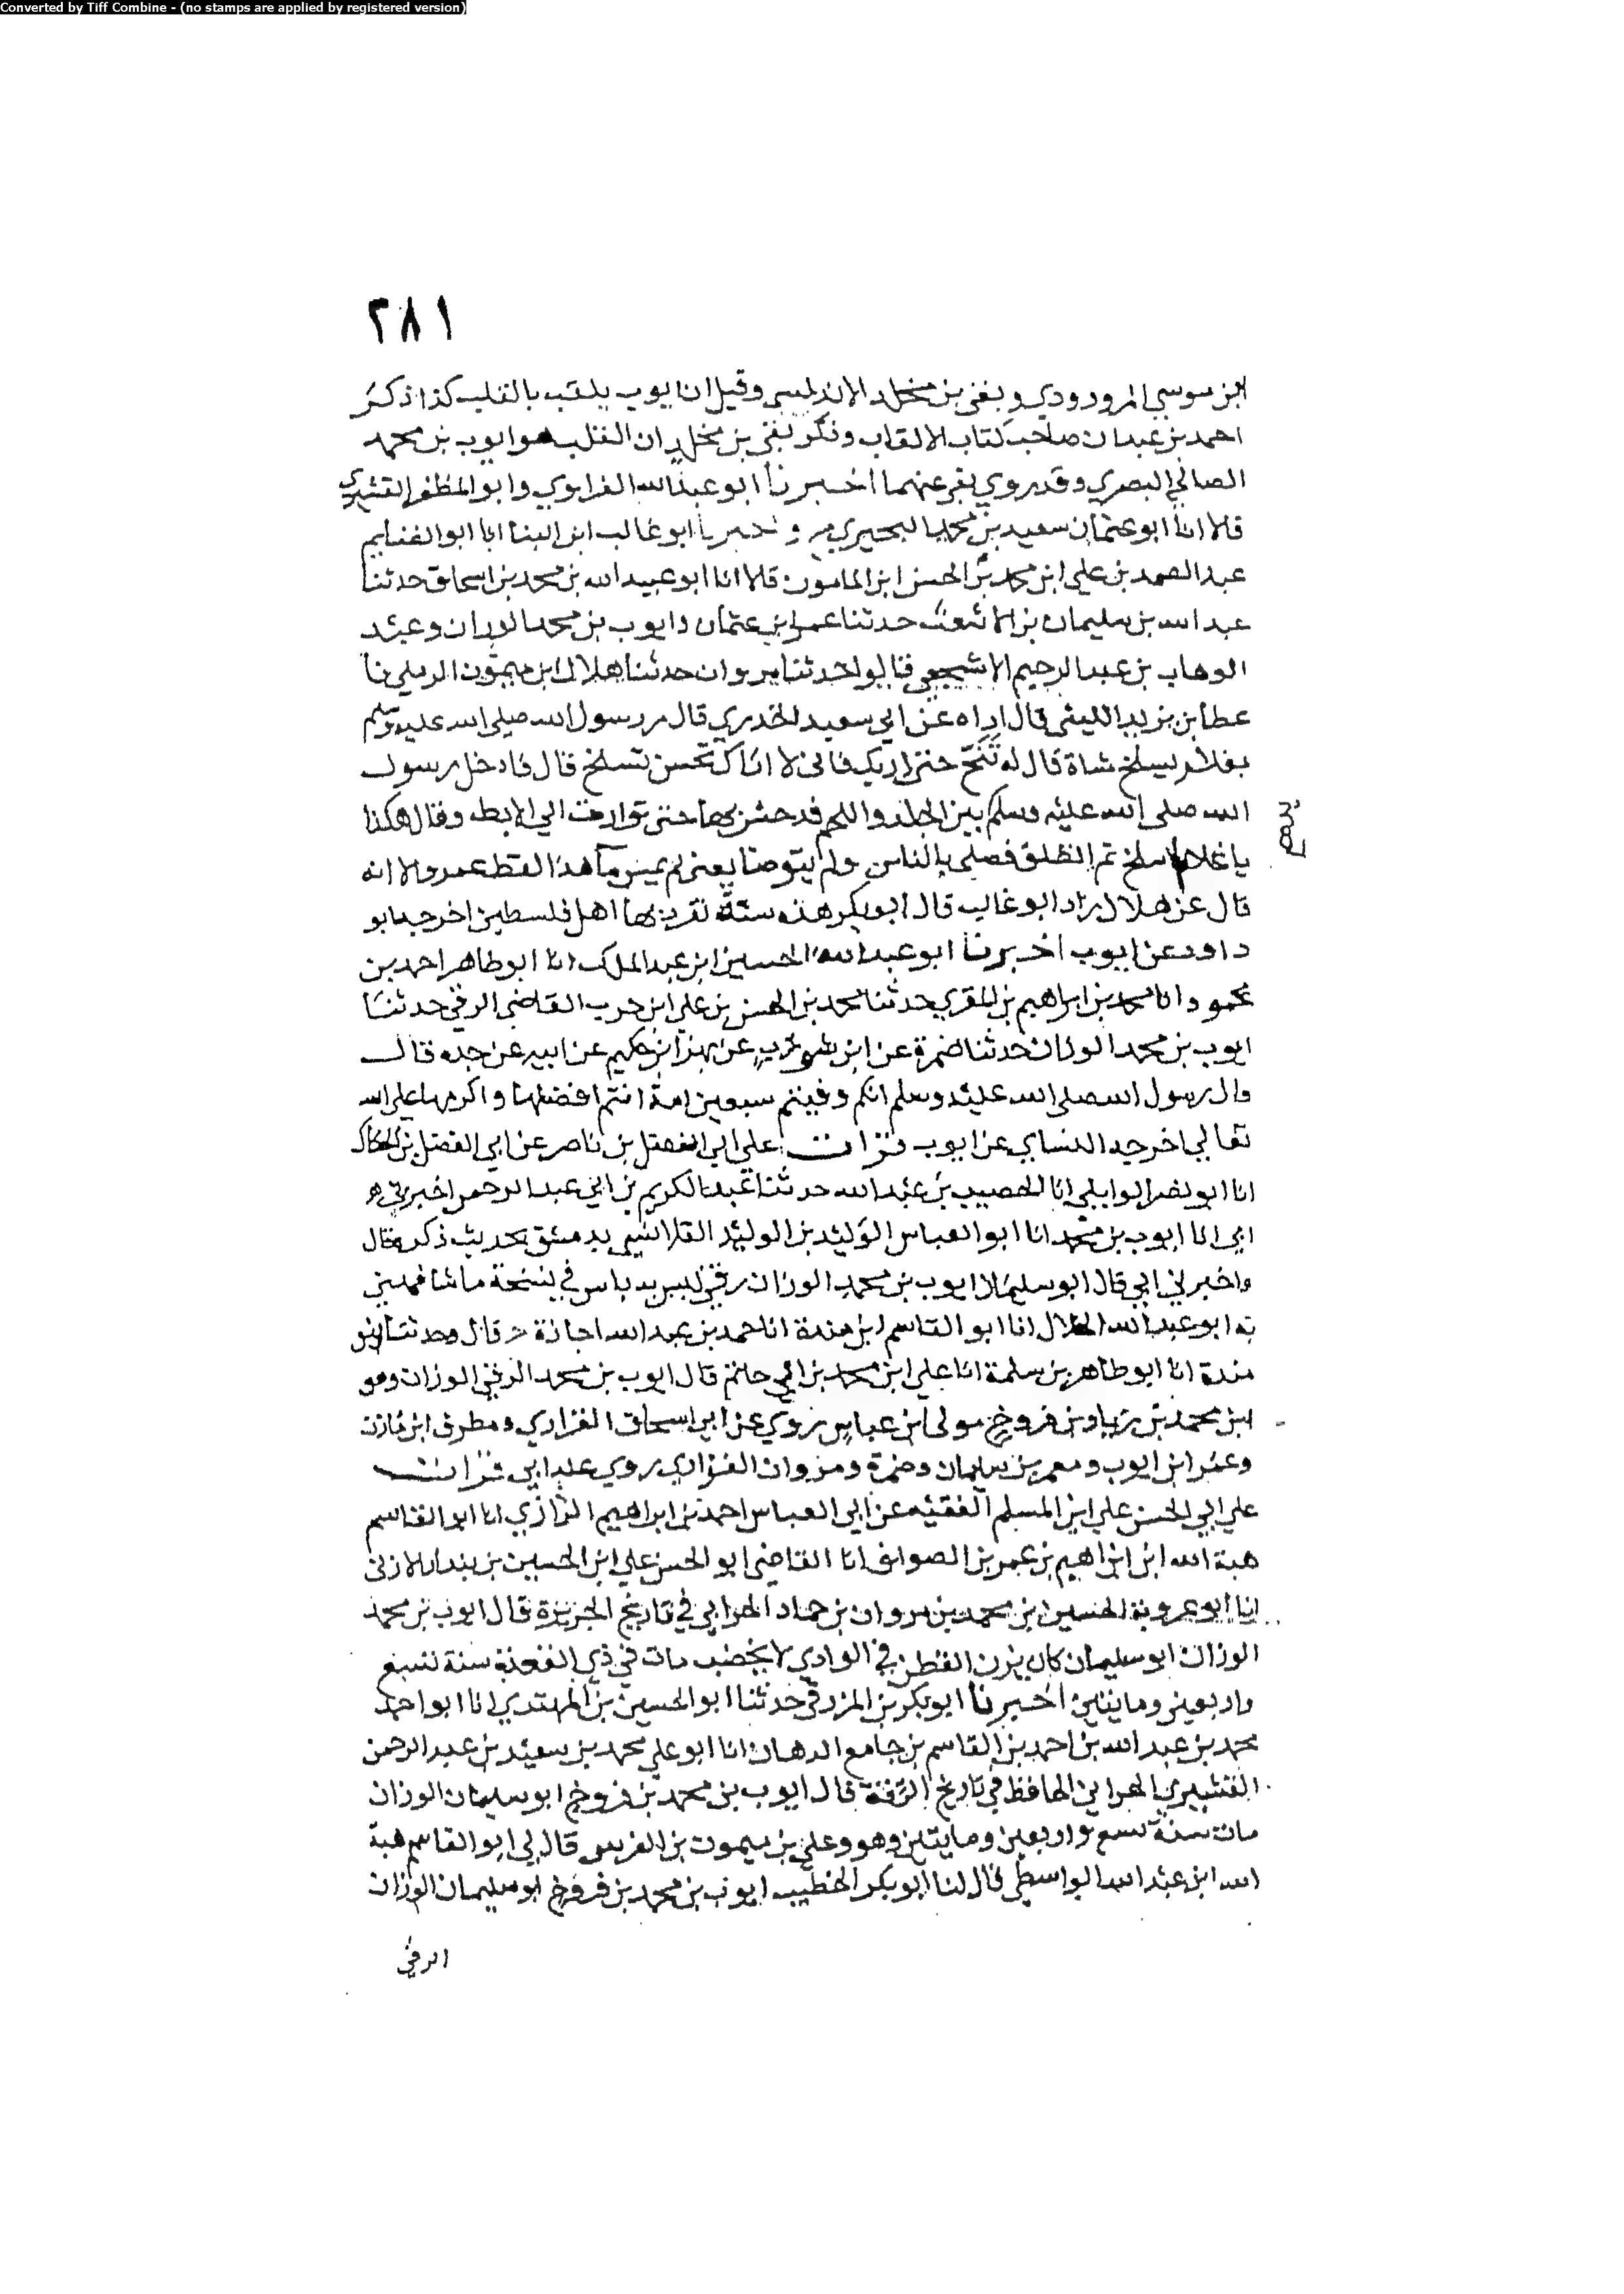 Converted by Tiff Combine - (no stamps are applied by registered version)
٢٨١
ابن موسي المرورودي وبقي بن مخلد الاندلسي وقيل ان ايوب يلقب بالقلب كذا ذكر
احمد بن عبدان صاحب كتاب الالقاب وذكر بقي بن مخلد ان القلب هو ايوب بن محمد
الصالحي البصري وقد روي بقي عنهما اخبرنا ابو عبدالله الفراوي وابو المظفر القشيري
قالا انا ابو عثمان سعيد بن محمد البحيري واخبرنا ابو غالب ابن البنا انا ابو الغنايم
عبد الصمد بن علي ابن محمد بن الحسن ابن المامون قالا انا ابو عبيد الله بن محمد بن اسحاق حدثنا
عبد الله بن سليمان بن الاشعث حدثنا عمرو ابن عثمان وايوب بن محمد الوزان وعبد
الوهاب بن عبد الرحيم الاشجعي قالوا حدثنا مروان حدثنا هلال ابن ميمون الرملي نا
عطا بن يزيد الليثي قال اراه عن ابي سعيد الخدري قال مر رسول الله صلي الله عليه وسلم
بغلام يسلخ شاة قال له تنح حتى اريك فاني لا اراك تحسن تسلخ قال فادخل رسول
الله صلى الله عليه وسلم بين الجلد واللحم فدحش بها حتى توارت الي الابط وقال هكذا
يا غلام اسلخ ثم انطلق فصلى بالناس ولم يتوضا يعني لم يمس ما هذا لفظ عمرو الا انه
قال عن هلال زاد ابو غالب قال ابو بكر هذه سنة تفرد بها اهل فلسطين اخرجه ابو
داود عن ايوب اخبرنا ابو عبد الله الحسين ابن عبد الملك انا ابو طاهر احمد بن
محمود انا محمد بن ابراهيم بن المقري حدثنا محمد بن الحسن بن علي ابن حرب القاضي الرقي حدثنا
ايوب بن محمد الوزان حدثنا ضمرة عن ابن شوذب عن بهز ابن حكيم عن ابيه عن جده قال
قال رسول الله صلى الله عليه وسلم انكم وفيتم سبعين امة انتم افضلها واكرمها على الله
تعالي اخرجه النساي عن ايوب قرات على ابي الفضل بن ناصر عن ابي الفضل بن الحكاك
انا ابو نصر الوايلي انا الخصيب بن عبد الله حدثنا عبد الكريم بن ابي عبد الرحمن اخبرني
ابي انا ايوب بن محمد انا ابو العباس الوليد بن الوليد القلانسي بدمشق بحديث ذكره قال
واخبرني ابي قال ابو سليمان ايوب بن محمد الوزان رقي ليس به باس في نسخة ما شافهني
به ابو عبد الله الخلال انا ابو القاسم ابن مندة انا حمد بن عبد الله اجازة ح قال وحدثنا ابن
مندة انا ابو طاهر بن سلمة انا علي ابن محمد بن ابي حاتم قال ايوب بن محمد الرقي الوزان وهو
ابن محمد بن زياد بن فروخ مولى ابن عباس روي عن ابي اسحاق الفزاري ومطرف ابن مازن
وعمر ابن ايوب ومعمر بن سليمان وضمرة ومروان الفزاري روي عنه ابي قرات
علي ابي الحسن علي ابن المسلم الفقيه عن ابي العباس احمد بن ابراهيم الرازي انا ابو القاسم
هبة الله ابن ابراهيم بن عمر بن الصواف انا القاضي ابو الحسن علي ابن الحسين بن بندار الاذني
انا ابو عروبة الحسين بن محمد بن مروان بن حماد الحراني في تاريخ الجزيرة قال ايوب بن محمد
الوزان ابو سليمان كان يزن القطن في الوادي لا يخضب مات في ذي القعدة سنة تسع
واربعين وماىتين اخبرنا ابو بكر بن المزرفي حدثنا ابو الحسين بن المهتدي انا ابو احمد
محمد بن عبد الله بن احمد بن القاسم بن جامع الدهان انا ابو علي محمد بن سعيد بن عبد الرحمن
القشيري الحراني الحافظ في تاريخ الرقة قال ايوب بن محمد بن فروخ ابو سليمان الوزان
مات سنة تسع واربعين ومايتين وهو وعلي بن ميمون بن الفرس قال لي ابو القاسم هبة
الله ابن عبد الله الواسطي قال لنا ابو بكر الخطيب ايوب بن محمد بن فروخ ابو سليمان الوزان
الرقي